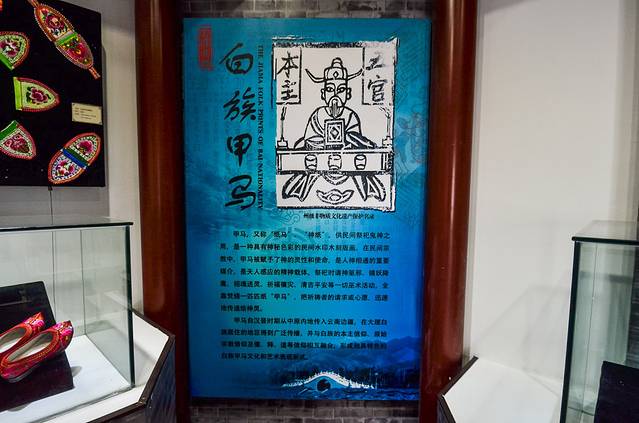 白族甲马
THE JIAMA FOLK PRINTS OF BAI NATIONALITY
本主
五官
州级非物质文化遗产保护名录
甲马，又称“纸马”、“神纸”，供民间祭祀鬼神之
用，是一种具有神秘色彩的民间木刻版画。在民间宗
教中，甲马被赋予了神的灵性和使命，是人神相通的重要
媒介，是天人感应的精神载体。祭祀时请神驱邪、镇妖降
魔、招魂送灵、祈福禳灾、清吉平安等一切巫术活动，全
靠焚烧一匹匹纸“甲马”，把祈祷者的请求或心愿，迅速
地传递给神灵。
甲马自汉晋时期从中原内地传入云南边疆，在大理白
族居住的地区得到广泛传播，并与白族的本主信仰、原始
宗教信仰及儒、释、道等信仰相互融合，形成独具特色的
白族甲马文化和艺术表现形式。